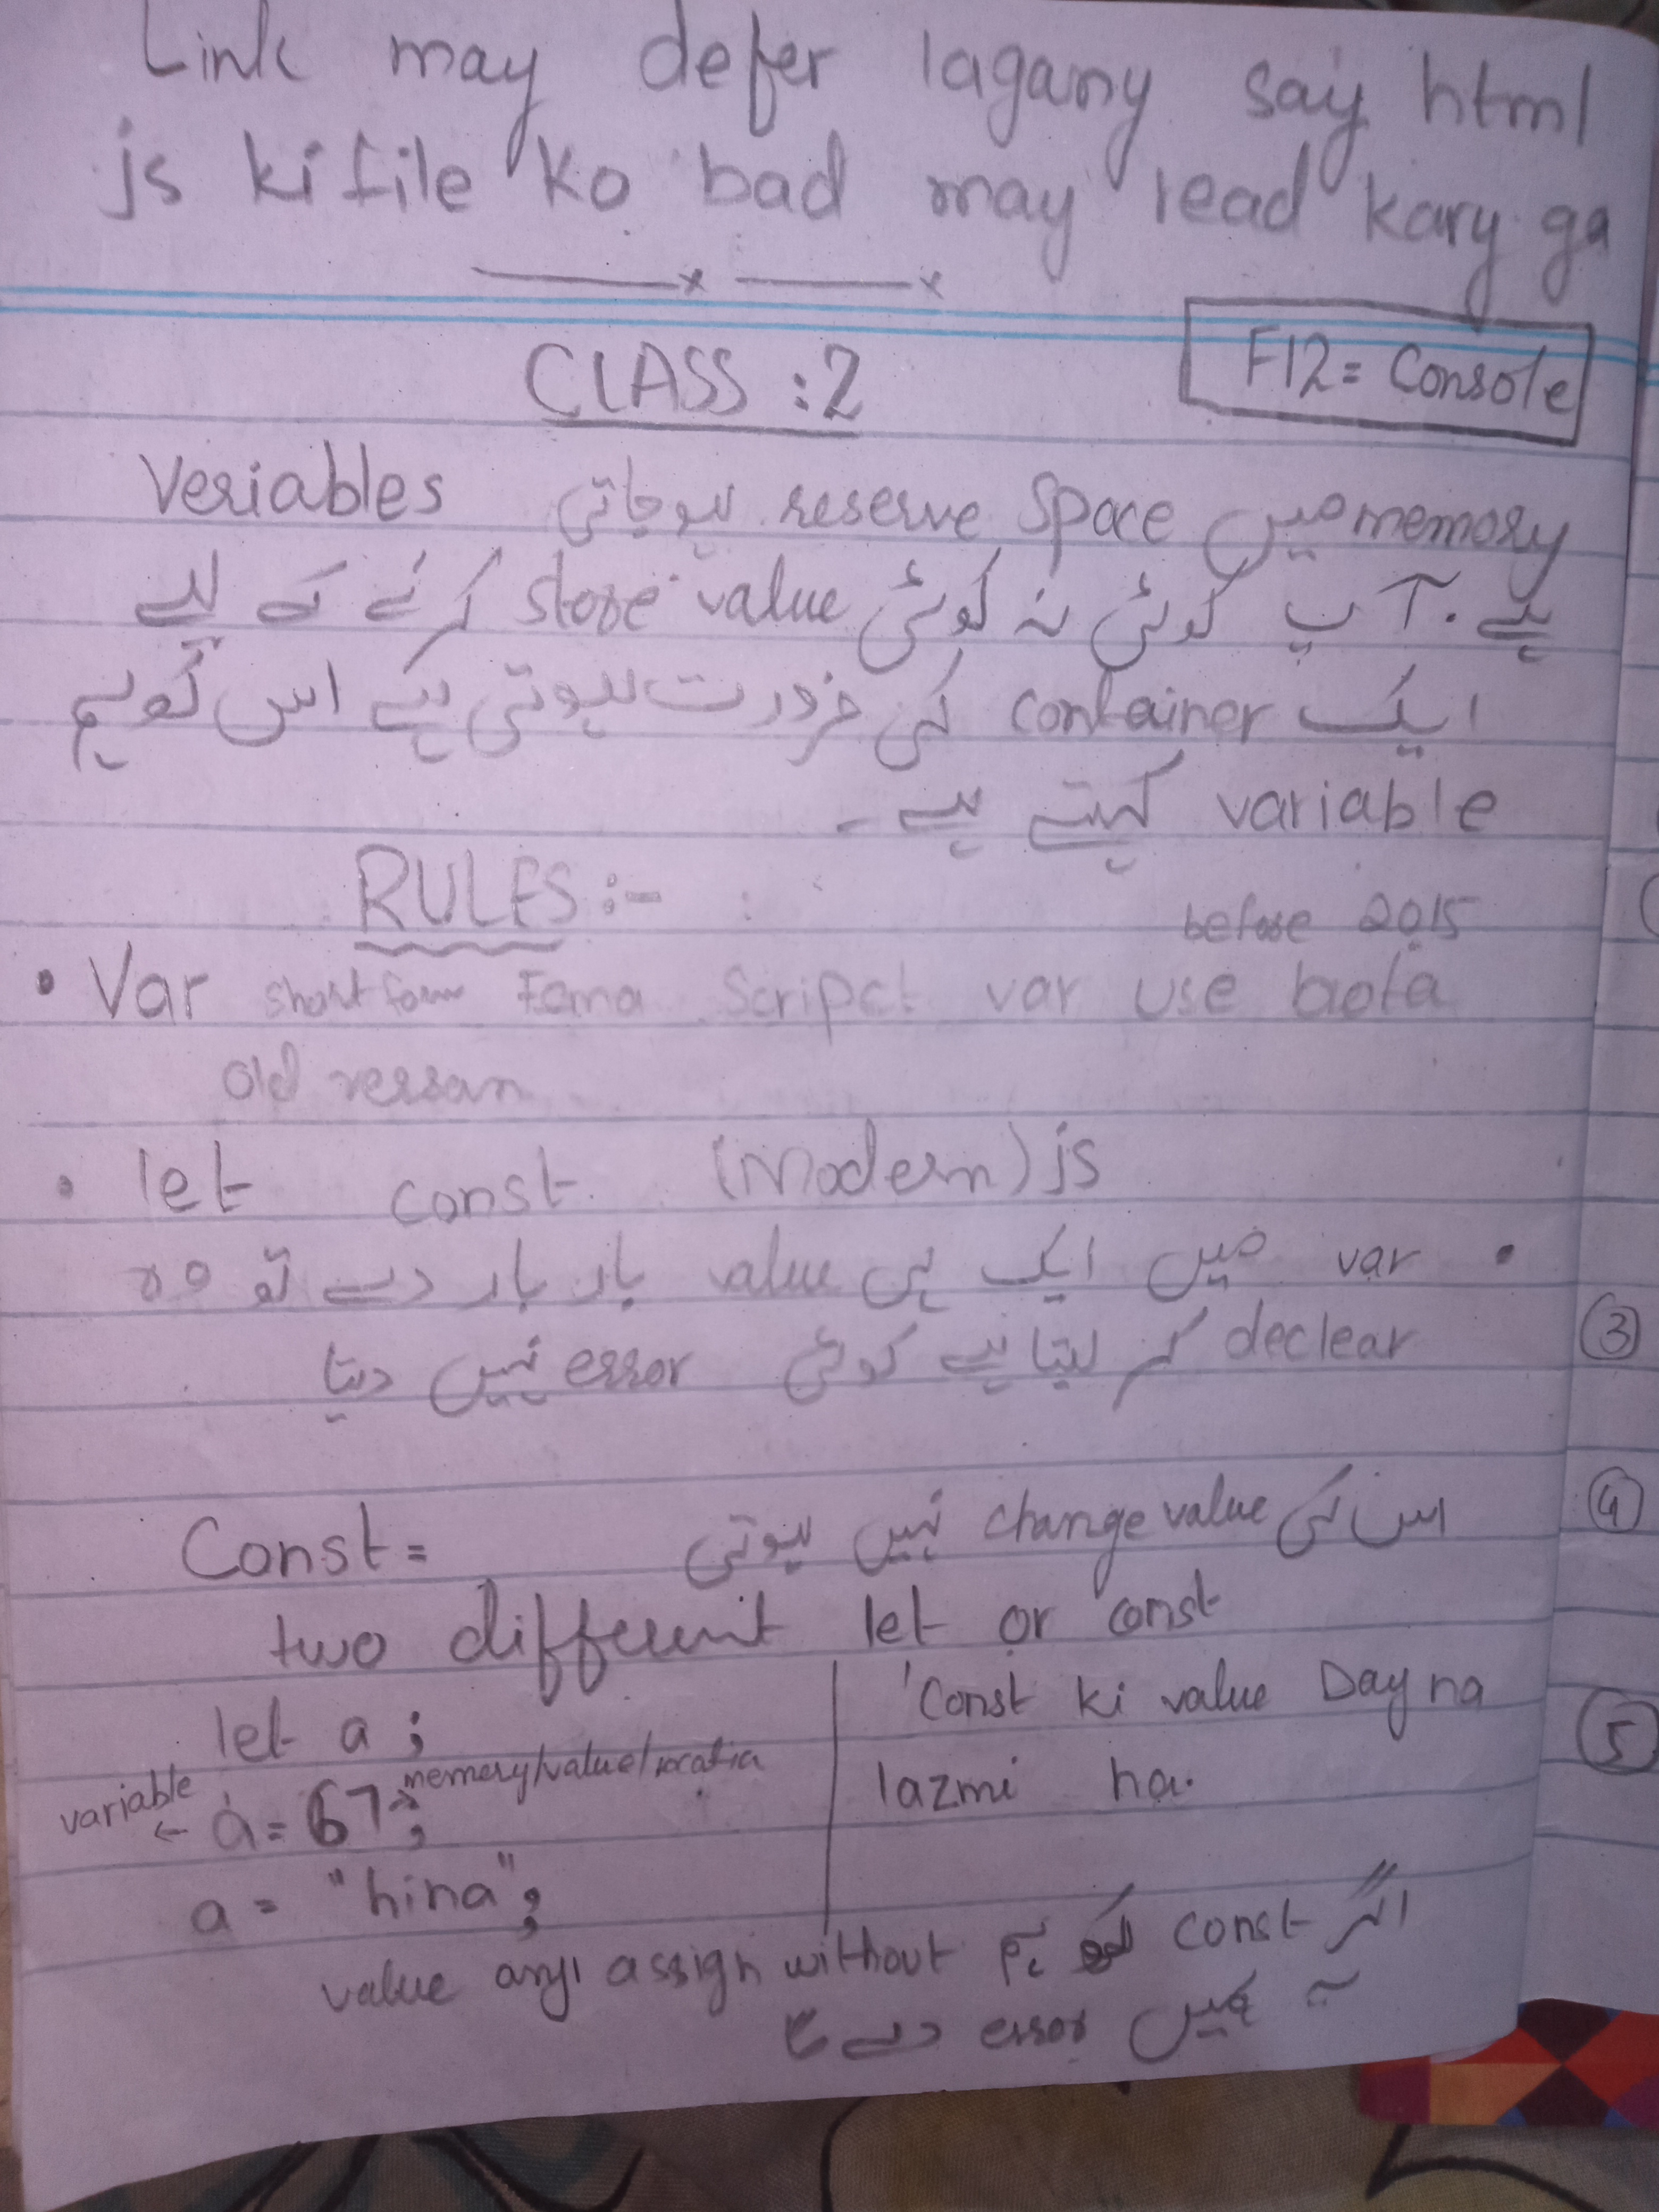 Link may defer lagany say html
js ki file ko bad may read kary ga
CLASS :2
F12= Console
Veriables memory میں space reserve ہوجاتی
ہے. آپ کوئی نہ کوئی value store کرنے کے لیے
ایک container کی ضرورت ہوتی ہے اس کو ہم
variable کہتے ہے -
RULES :-
before 2015
• Var short form Ecma Script var use hota
old version
• let const (Modern) js
• var میں ایک ہی value بار بار دے تو وہ
declear کر لیتا ہے کوئی error نہیں دیتا
Const = اس کی value change نہیں ہوتی
two different let or const
let a ;
variable ← a = 67; memory/value/
a = "hina";
Const ki value Day na
lazmi ha.
اگر const کو ہم without assign any value
یہ ہمیں error دے گا
3
4
5